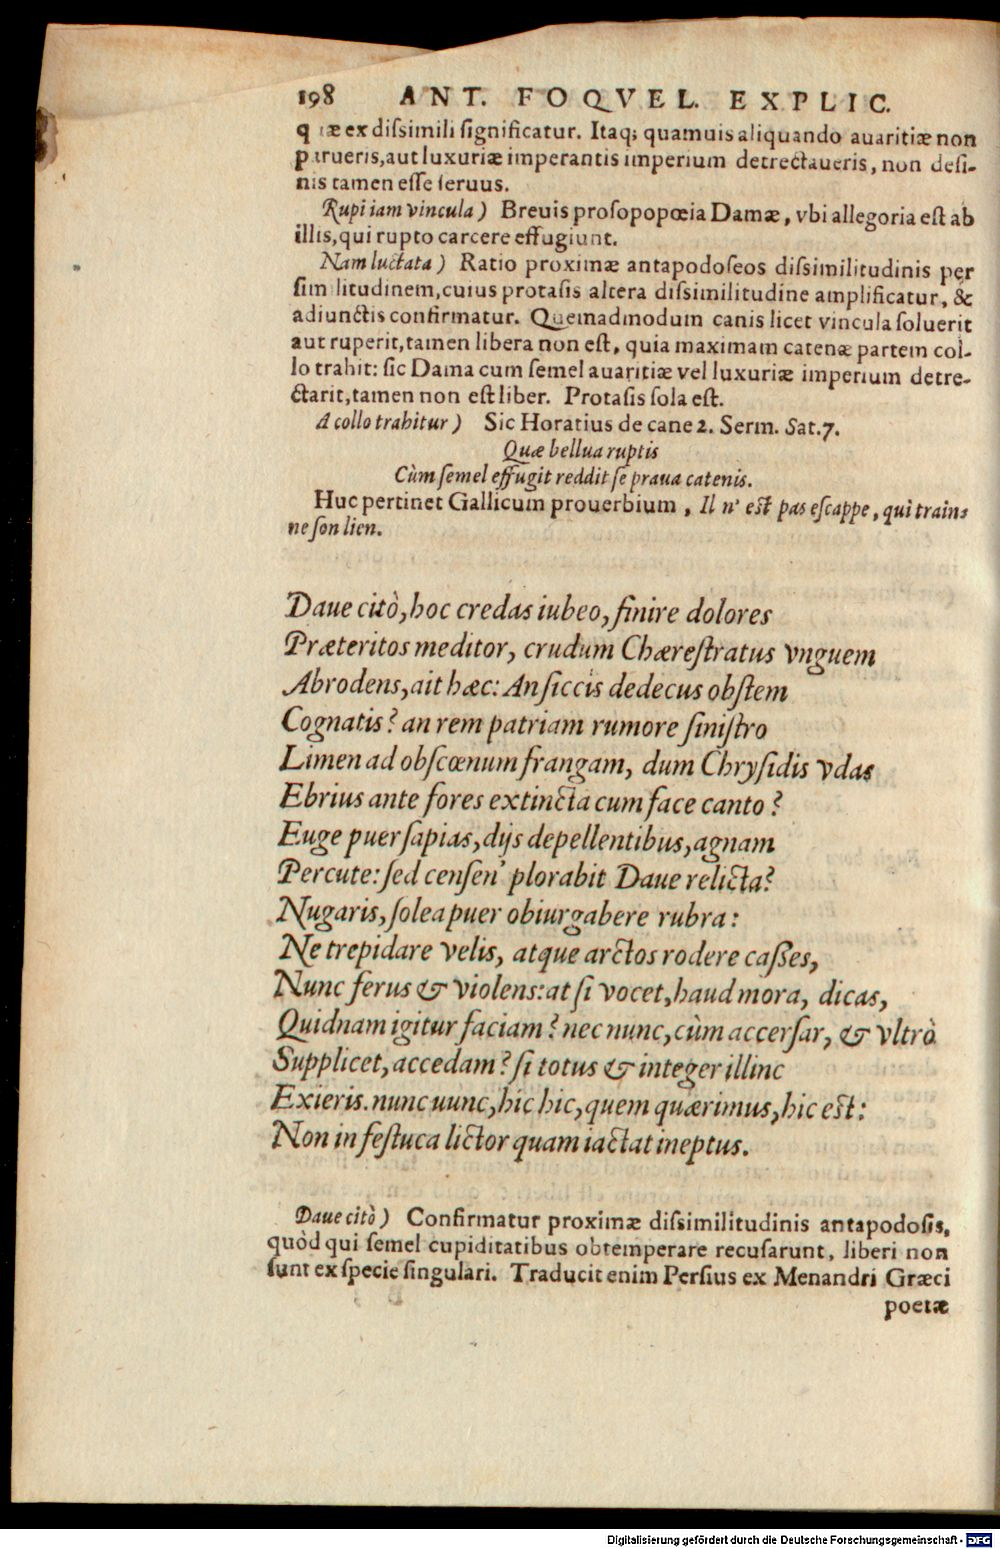 198 ANT. FOQVEL. EXPLIC.
quæ ex dissimili significatur. Itaq; quamuis aliquando auaritiæ non
parueris, aut luxuriæ imperantis imperium detrectaueris, non desi-
nis tamen esse seruus.
Rupi iam vincula) Breuis prosopopœia Damæ, vbi allegoria est ab
illis, qui rupto carcere effugiunt.
Nam luctata) Ratio proximæ antapodoseos dissimilitudinis per
similitudinem, cuius protasis altera dissimilitudine amplificatur, &
adiunctis confirmatur. Quemadmodum canis licet vincula soluerit
aut ruperit, tamen libera non est, quia maximam catenæ partem col-
lo trahit: sic Dama cum semel auaritiæ vel luxuriæ imperium detre-
ctarit, tamen non est liber. Protasis sola est.
A collo trahitur) Sic Horatius de cane 2. Serm. Sat. 7.
Quæ bellua ruptis
Cùm semel effugit reddit se praua catenis.
Huc pertinet Gallicum prouerbium, Il n' est pas escappe, qui train-
ne son lien.
Daue citò, hoc credas iubeo, finire dolores
Præteritos meditor, crudum Chærestratus vnguem
Abrodens, ait hæc: An siccis dedecus obstem
Cognatis? an rem patriam rumore sinistro
Limen ad obscœnum frangam, dum Chrysidis vdas
Ebrius ante fores extincta cum face canto?
Euge puer sapias, dijs depellentibus, agnam
Percute: sed censen' plorabit Daue relicta?
Nugaris, solea puer obiurgabere rubra:
Ne trepidare velis, atque arctos rodere casses,
Nunc ferus & violens: at si vocet, haud mora, dicas,
Quidnam igitur faciam? nec nunc, cùm accersar, & vltrò
Supplicet, accedam? si totus & integer illinc
Exieris. nunc uunc, hic hic, quem quærimus, hic est:
Non in festuca lictor quam iactat ineptus.
Daue citò) Confirmatur proximæ dissimilitudinis antapodosis,
quòd qui semel cupiditatibus obtemperare recusarunt, liberi non
sunt ex specie singulari. Traducit enim Persius ex Menandri Græci
poetæ
Digitalisierung gefördert durch die Deutsche Forschungsgemeinschaft - DFG